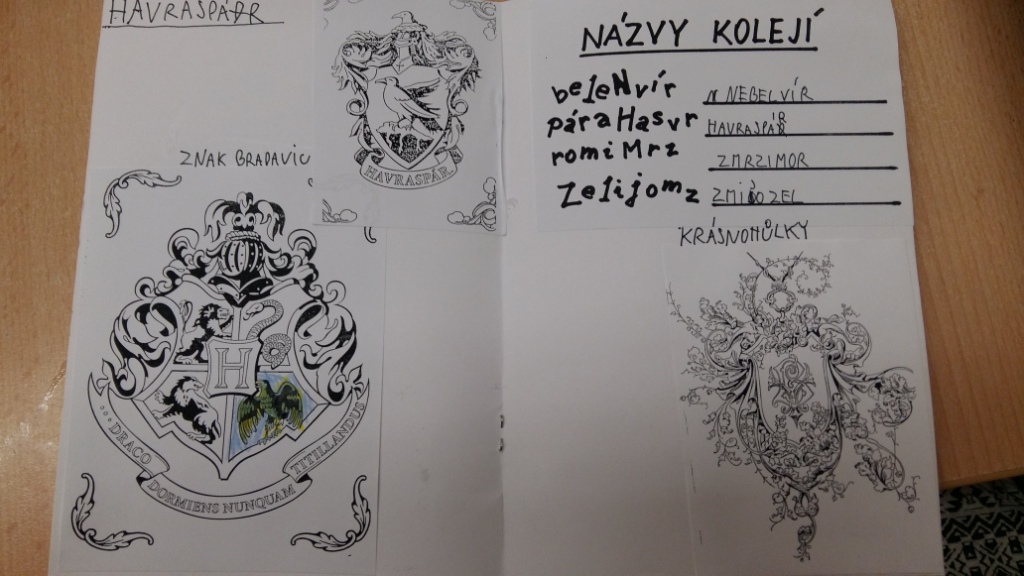 HAVRASPÁR
HAVRASPÁR
ZNAK BRADAVIC
H
DRACO
DORMIENS NUNQUAM
TITILLANDUS
NÁZVY KOLEJÍ
beleNvír NEBELVÍR
páraHasvr HAVRASPÁR
romiMrz ZMRZIMOR
Zelijomz ZMIJOZEL
KRÁSNOHŮLKY